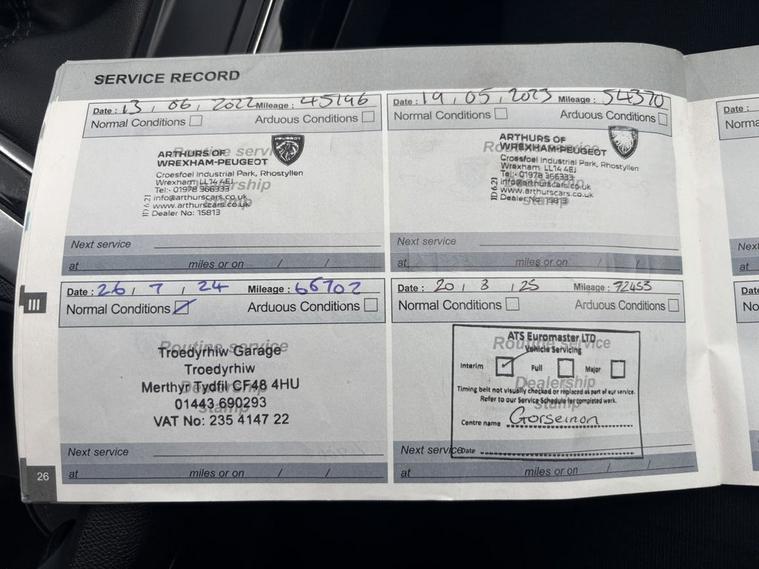 SERVICE RECORD
Date: 13, 06, 2022 Mileage: 45196
Normal Conditions Arduous Conditions
Routine service
ARTHURS OF
WREXHAM-PEUGEOT
PEUGEOT
Croesfoel Industrial Park, Rhostyllen
Wrexham LL14 4EJ
Tel:- 01978 366333
Dealership
info@arthurscars.co.uk
www.arthurscars.co.uk
Dealer No: 15813
ID6.21
Next service
at miles or on / /
Date: 19, 05, 2023 Mileage: 54370
Normal Conditions Arduous Conditions
ARTHURS OF
WREXHAM-PEUGEOT
Croesfoel Industrial Park, Rhostyllen
Wrexham LL14 4EJ
Tel:- 01978 366333
info@arthurscars.co.uk
www.arthurscars.co.uk
Dealer No: 15813
ID6.21
stamp
Next service
at miles or on / /
III
Date: 26, 7, 24 Mileage: 66702
Normal Conditions Arduous Conditions
Routine service
Troedyrhiw Garage
Troedyrhiw
Dealership
Merthyr Tydfil CF48 4HU
01443 690293
stamp
VAT No: 235 4147 22
Next service
at miles or on / /
Date: 20, 3, 25 Mileage: 72453
Normal Conditions Arduous Conditions
ATS Euromaster LTD
Routine service
Vehicle Servicing
Interim Full Major
Dealership
Timing belt not visually checked or replaced as part of our service.
Refer to our Service Schedule for completed work.
stamp
Centre name Gorseinon
Next service
Date
at miles or on / /
26
Date:
Norma
Next
at
Date
No